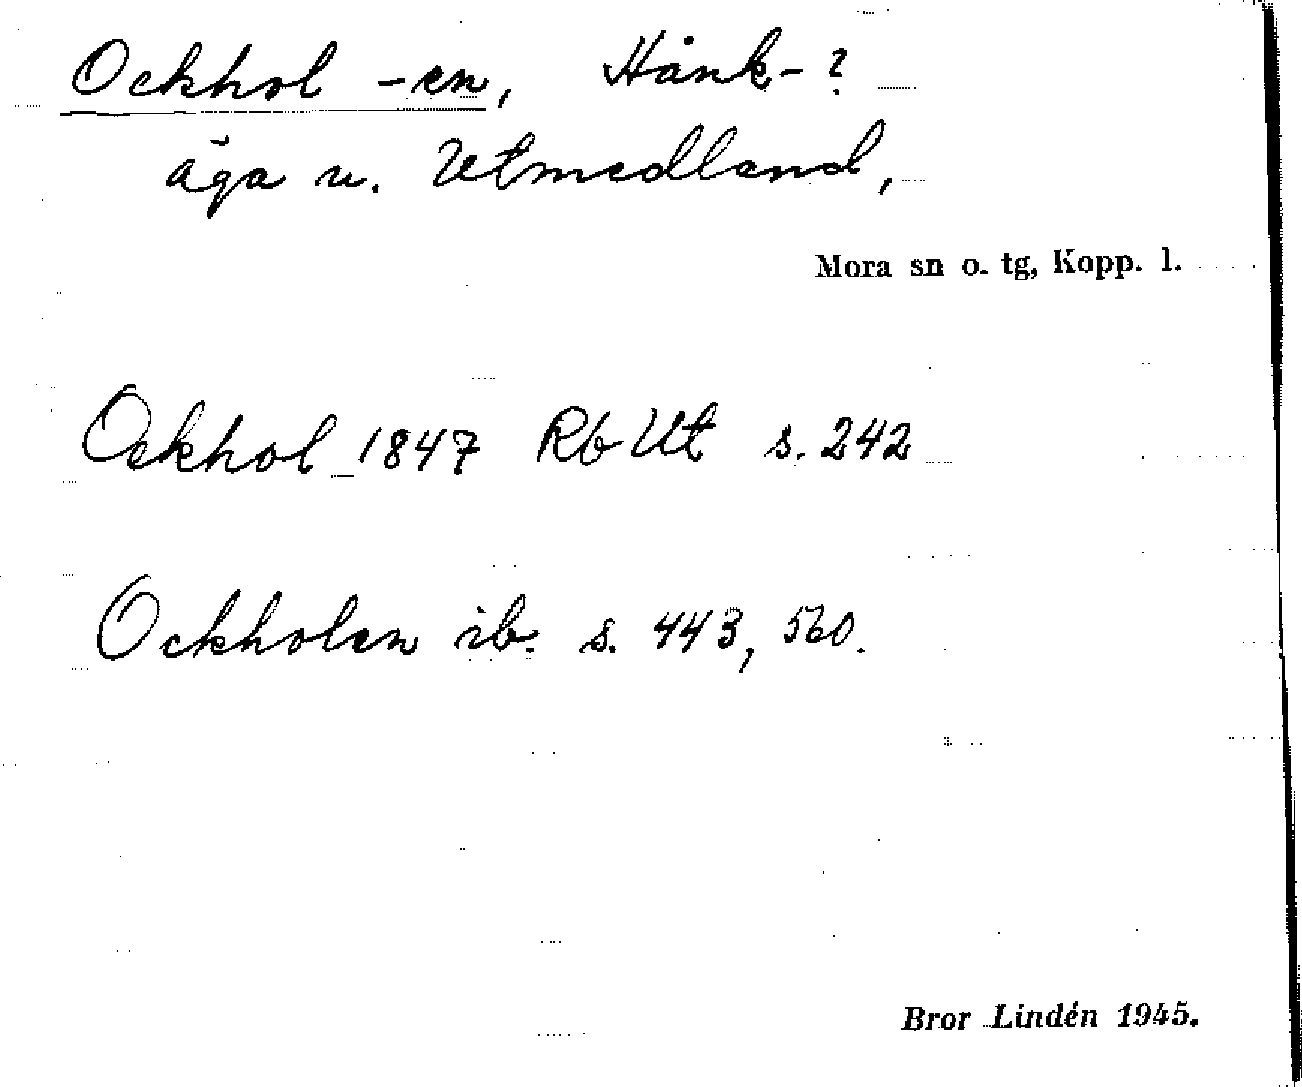 Ockhol -en, Hånk- ?
äga u. Utmedland,
Mora sn o. tg, Kopp. l.
Ockhol 1847 Rb Ut s. 242
Ockholen ib. s. 443, 560.
Bror Lindén 1945.